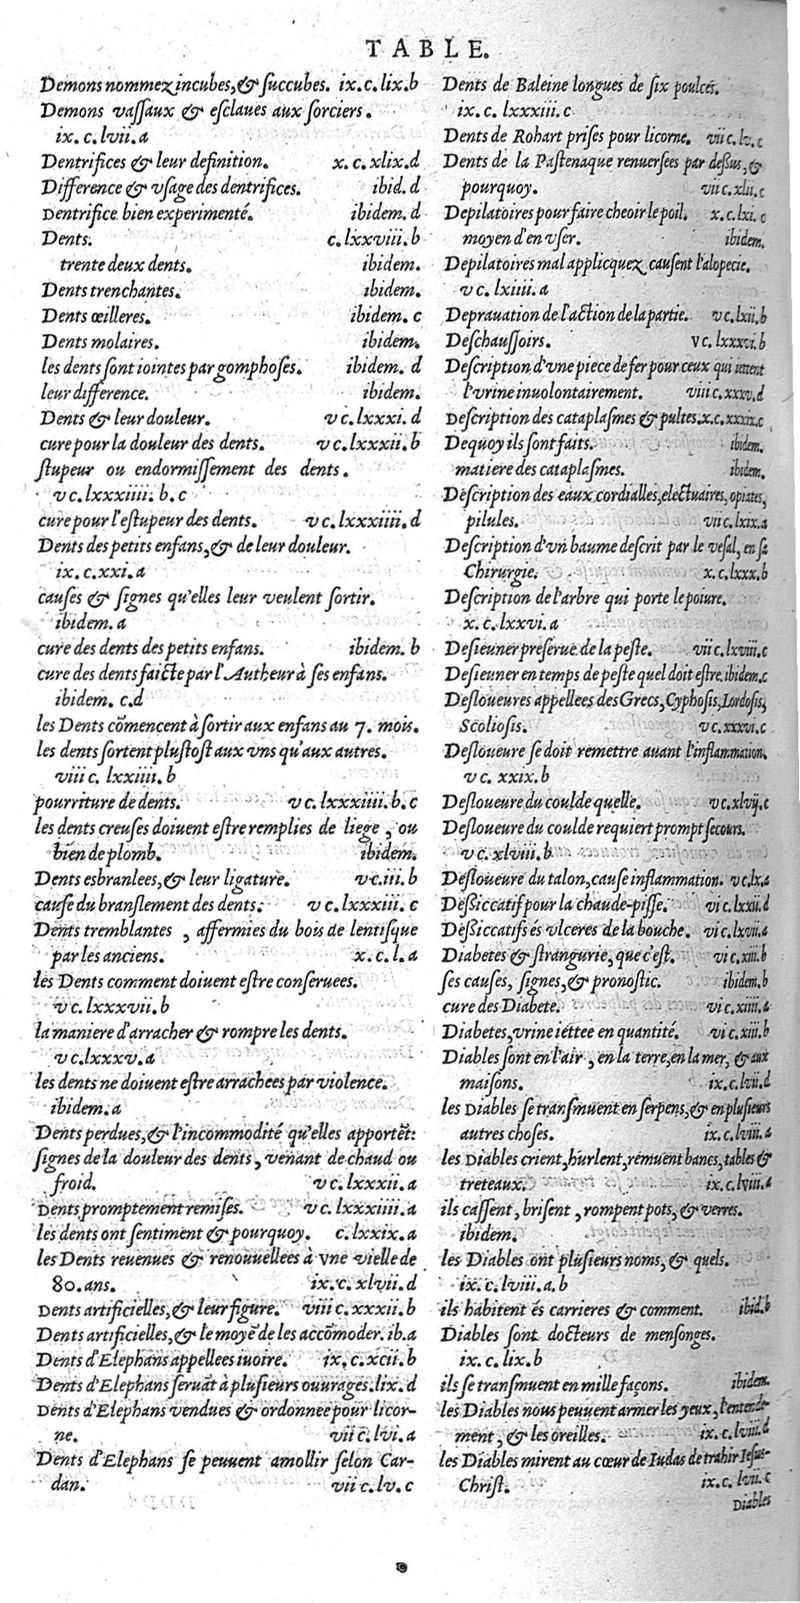 TABLE.
Demons nommez incubes, & succubes. ix.c.lix.b
Demons vassaux & esclaues aux sorciers.
ix.c.lvii.a
Dentrifices & leur definition. x.c.xlix.d
Difference & vsage des dentrifices. ibid.d
Dentrifice bien experimenté. ibidem.d
Dents. c.lxxviii.b
trente deux dents. ibidem.
Dents trenchantes. ibidem.
Dents œilleres. ibidem. c
Dents molaires. ibidem.
les dents sont iointes par gomphoses. ibidem. d
leur difference. ibidem.
Dents & leur douleur. vc.lxxxi.d
cure pour la douleur des dents. vc.lxxxii.b
stupeur ou endormissement des dents.
vc.lxxxiiii.b.c
cure pour l'estupeur des dents. vc.lxxxiiii.d
Dents des petits enfans, & de leur douleur.
ix.c.xxi.a
causes & signes qu'elles leur veulent sortir.
ibidem.a
cure des dents des petits enfans. ibidem. b
cure des dents faicte par l'Autheur à ses enfans.
ibidem. c.d
les Dents cōmencent à sortir aux enfans au 7. mois.
les dents sortent plustost aux vns qu'aux autres.
viii c. lxxiiii.b
pourriture de dents. vc.lxxxiiii.b.c
les dents creuses doiuent estre remplies de liege, ou
bien de plomb. ibidem.
Dents esbranlees, & leur ligature. vc.iii.b
cause du branslement des dents. vc.lxxxiii.c
Dents tremblantes, affermies du bois de lentisque
par les anciens. x.c.l.a
les Dents comment doiuent estre conseruees.
vc.lxxxvii.b
la maniere d'arracher & rompre les dents.
vc.lxxxv.a
les dents ne doiuent estre arrachees par violence.
ibidem.a
Dents perdues, & l'incommodité qu'elles apportēt:
signes de la douleur des dents, venant de chaud ou
froid. vc.lxxxii.a
Dents promptement remises. vc.lxxxiiii.a
les dents ont sentiment & pourquoy. c.lxxix.a
les Dents reuenues & renouuellees à vne vielle de
80. ans. ix.c.xlvii.d
Dents artificielles, & leur figure. viii c.xxxii.b
Dents artificielles, & le moyē de les accōmoder. ib.a
Dents d'Elephans appellees iuoire. ix.c.xcii.b
Dents d'Elephans seruāt à plusieurs ouurages. lix.d
Dents d'Elephans vendues & ordonnees pour licor-
ne. vii c.lvi.a
Dents d'Elephans se peuuent amollir selon Car-
dan. vii c.lv.c
Dents de Baleine longues de six poulces.
ix. c. lxxxiii.c
Dents de Rohart prises pour licorne. vii c.lv.c
Dents de la Pastenaque renuersees par dessus, &
pourquoy. vii c.xlii.c
Depilatoires pour faire cheoir le poil. x.c.lxi. c
moyen d'en vser. ibidem.
Depilatoires mal applicquez, causent l'alopecie.
vc.lxiiii.a
Deprauation de l'action de la partie. vc.lxii.b
Deschaussoirs. vc.lxxxvi.b
Description d'vne piece de fer pour ceux qui iettent
l'vrine inuolontairement. viii c.xxxv.d
Description des cataplasmes & pultes. x.c.xxxix.c
Dequoy ils sont faits. ibidem.
matiere des cataplasmes. ibidem.
Description des eaux cordialles, electuaires, opiates,
pilules. vii c.lxix.a
Description d'vn baume descrit par le vesal, en sa
Chirurgie. x.c.lxxx.b
Description de l'arbre qui porte le poiure.
x. c.lxxvi.a
Desieuner preserue de la peste. vii c.lxviii.c
Desieuner en temps de peste quel doit estre. ibidem.c
Desloueures appellees des Grecs, Cyphosis, Lordosis,
Scoliosis. vc.xxxvi.c
Desloueure se doit remettre auant l'inflammation.
vc. xxix.b
Desloueure du coulde quelle. vc.xlvij.c
Desloueure du coulde requiert prompt secours.
vc.xlviii.b
Desloueure du talon, cause inflammation. vc.lx.a
Desiccatif pour la chaude-pisse. vi c.lxxii.d
Desiccatifs és vlceres de la bouche. vi c.lxvii.a
Diabetes & strangurie, que c'est. vi c.xiii.b
ses causes, signes, & pronostic. ibidem.b
cure des Diabete. vi c.xiiii.a
Diabetes, vrine iettee en quantité. vi c.xiii.b
Diables sont en l'air, en la terre, en la mer, & aux
maisons. ix.c.lvii.d
les Diables se transmuent en serpens, & en plusieurs
autres choses. ix.c.lviii.a
les Diables crient, hurlent, remuent bancs, tables &
treteaux. ix.c.lviii.a
ils cassent, brisent, rompent pots, & verres.
ibidem.
les Diables ont plusieurs noms, & quels.
ix. c.lviii.a.b
ils habitent és carrieres & comment. ibid.b
Diables sont docteurs de mensonges.
ix.c.lix.b
ils se transmuent en mille façons. ibidem.
les Diables nous peuuent armer les yeux, l'entende-
ment, & les oreilles. ix.c.lviii.d
les Diables mirent au cœur de Iudas de trahir Iesus-
Christ. ix.c.lvii.c
Diables